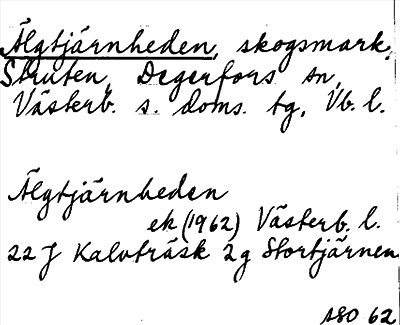 Älgtjärnheden, skogsmark,
Struten, Degerfors sn,
Västerb. s. doms. tg, Vb. l.
Älgtjärnheden
ek (1962) Västerb. l.
22 J Kalvträsk 2g Stortjärnen
ASO 62